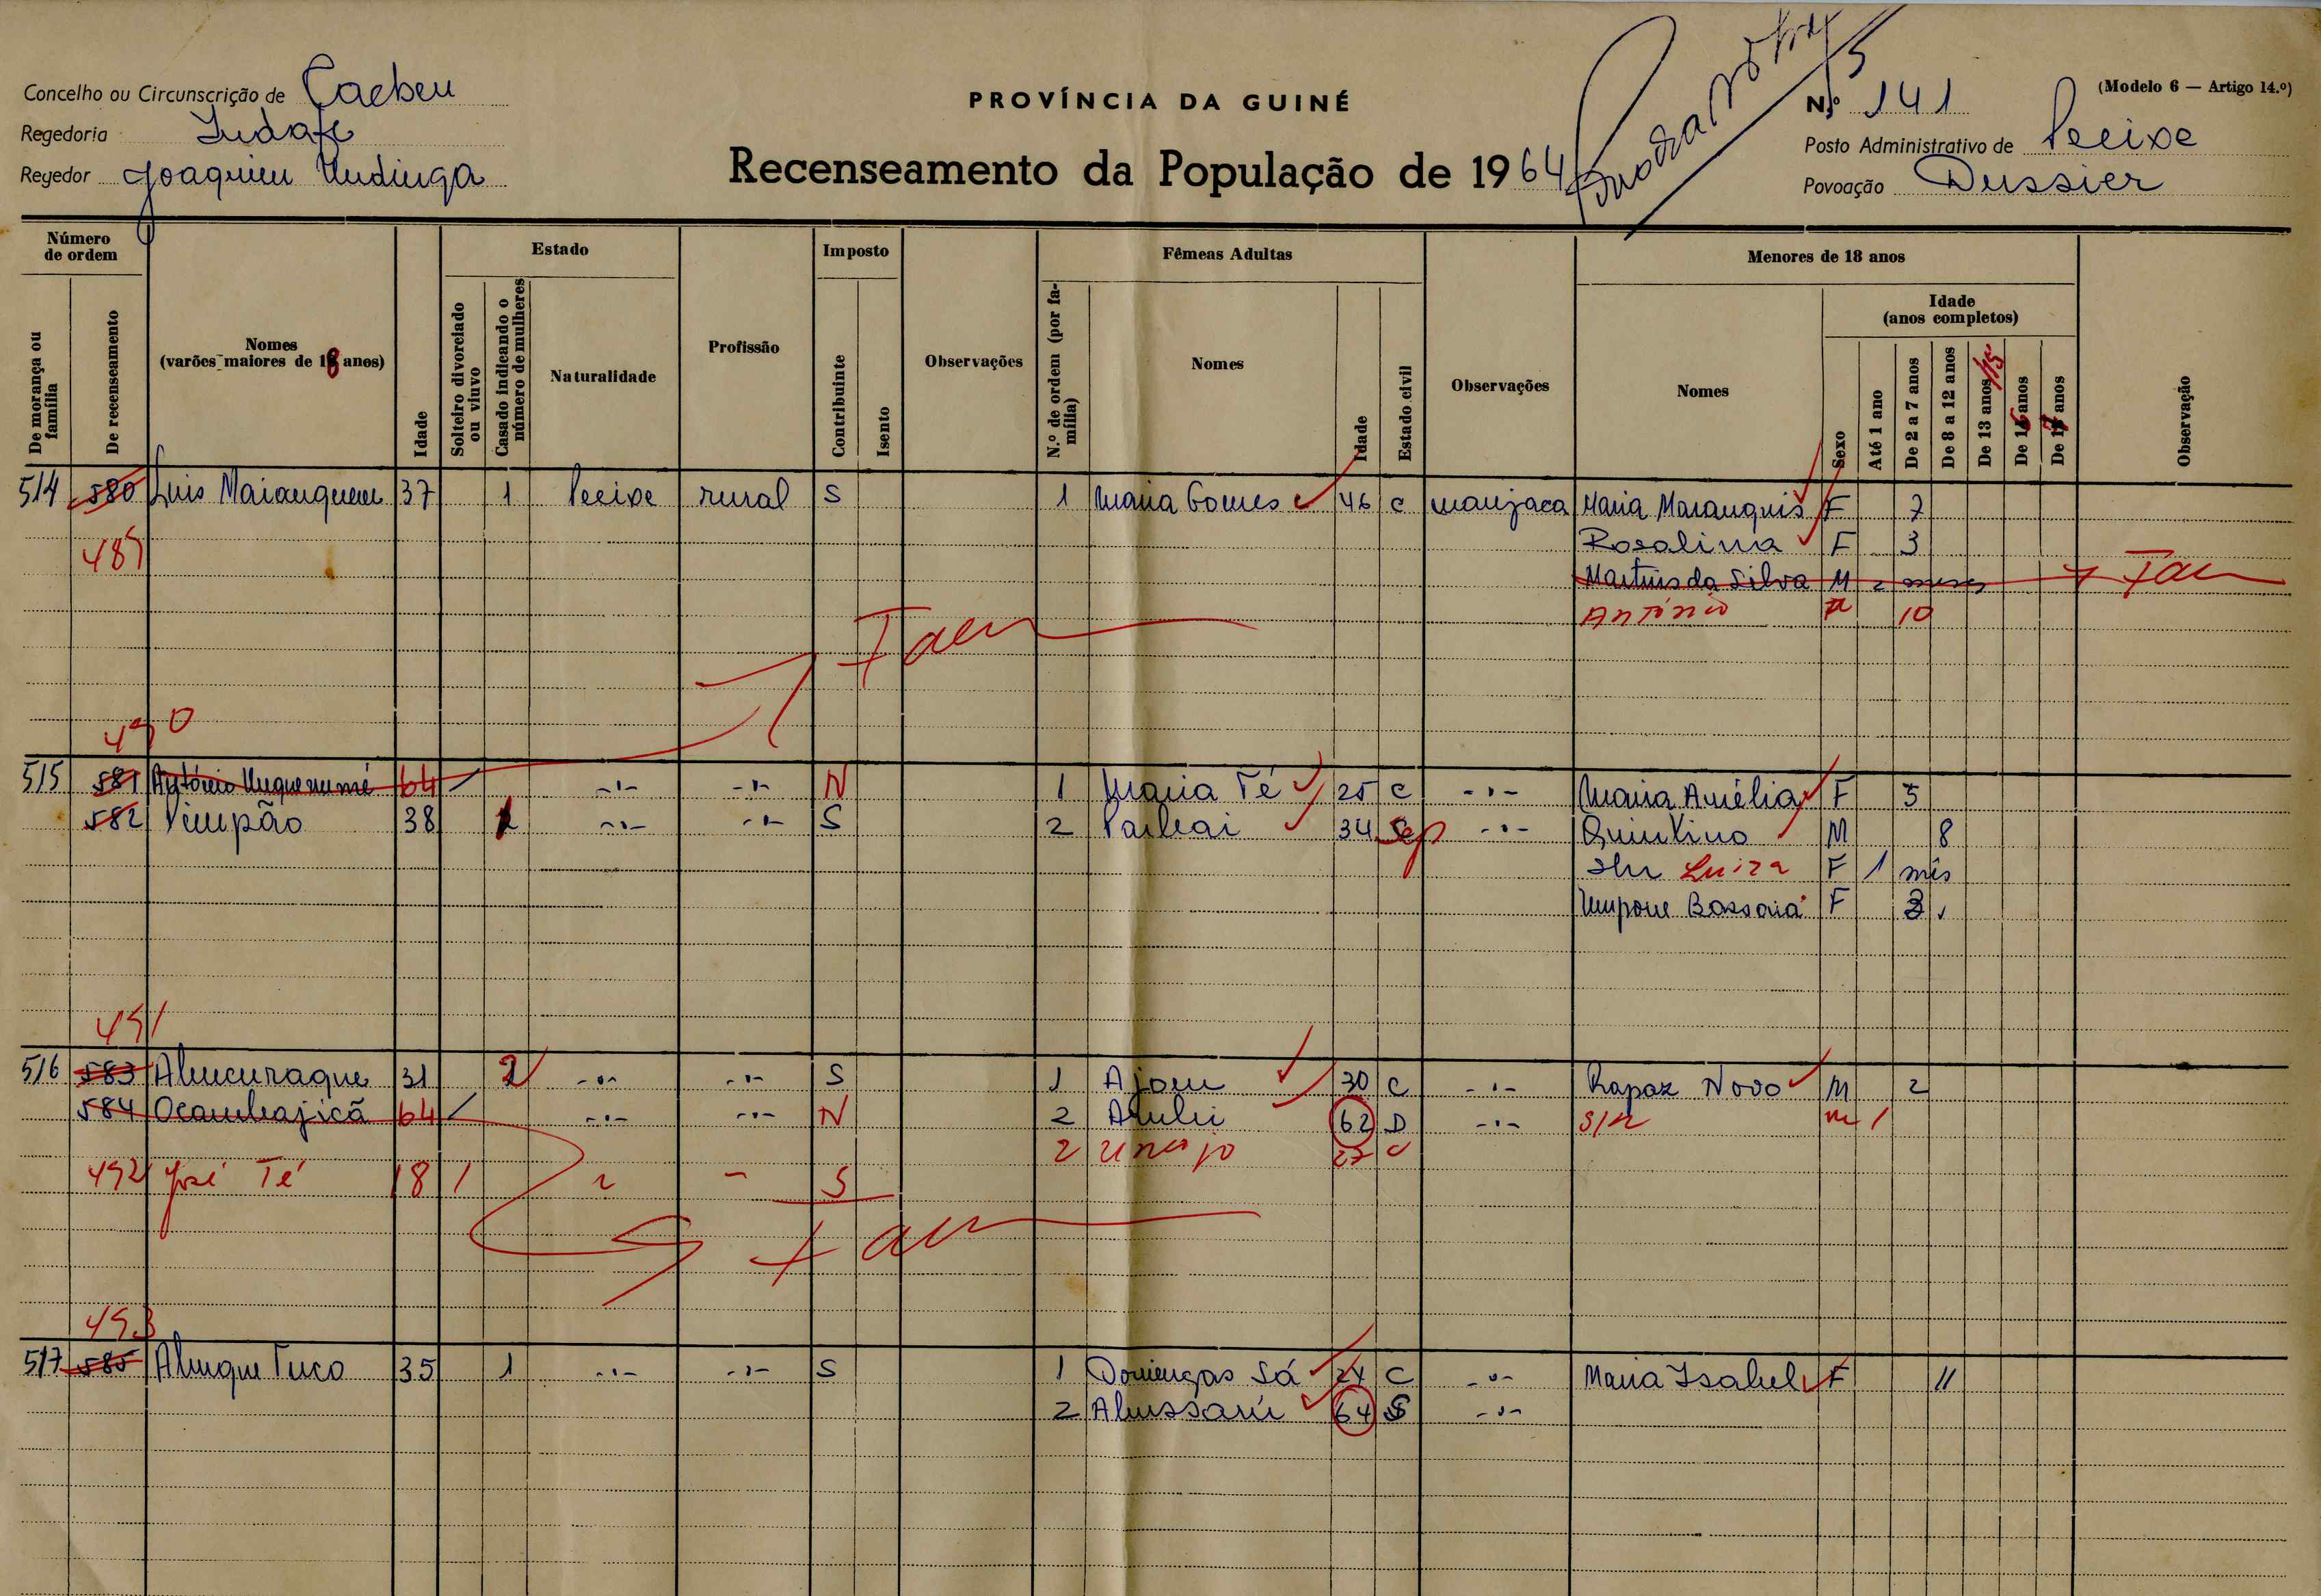 Concelho ou Circunscrição de Cacheu
PROVÍNCIA DA GUINÉ
N.º 141
(Modelo 6 — Artigo 14.º)
Regedoria
Posto Administrativo de Pecixe
Regedor Joaquim Undinga
Recenseamento da População de 1964
Povoação Dussier
Número de ordem
De morança ou família
De recenseamento
Nomes (varões maiores de 18 anos)
Idade
Estado
Solteiro divorciado ou viuvo
Casado indicando o número de mulheres
Naturalidade
Profissão
Imposto
Contribuinte
Isento
Observações
Fêmeas Adultas
N.º de ordem (por família)
Nomes
Idade
Estado civil
Observações
Menores de 18 anos
Nomes
Sexo
Idade (anos completos)
Até 1 ano
De 2 a 7 anos
De 8 a 12 anos
De 13 anos /15
De 16 anos
De 17 anos
Observação
514 580 Luis Maianquem 37 1 Pecixe rural S 1 Maria Gomes 46 C manjaca Maria Maranquis F 7
489 Rosalina F 3
Martins da Silva M 2 meses
António 10
490
515 581 António 64 -"- -"- N 1 Maria Té 25 C -"- Maria Amélia F 5
582 Pimpão 38 -"- -"- S 2 34 Sep -"- Quintino M 8
Luiza F 1 mês
Umpone Bassaia F 3
491
516 583 31 2 -"- -"- S 1 30 C -"- Rapaz Novo M 2
584 64 -"- -"- N 2 62 D -"- S/N m 1
2
492 José Té 18 1 S
493
517 585 35 1 -"- -"- S 1 Domingas Sá 24 C -"- Maria Isabel F 11
2 64 S -"-